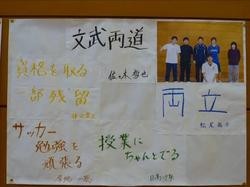 文武両道
佐々木哲也
資格を取る
一部残留
両立
松尾
サッカー
勉強を
頑張る
授業に
ちゃんとでる